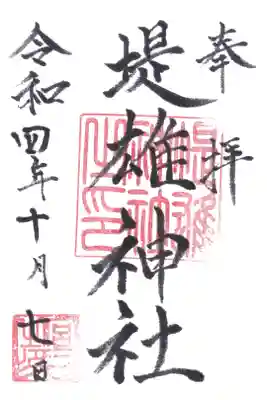 奉拝
堤雄神社
令和四年十月七日